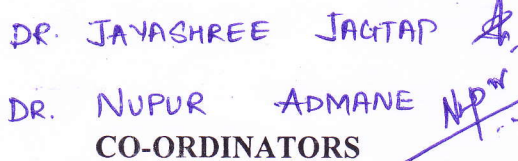 DR. JAYASHREE JAGTAP
DR. NUPUR ADMANE
CO-ORDINATORS